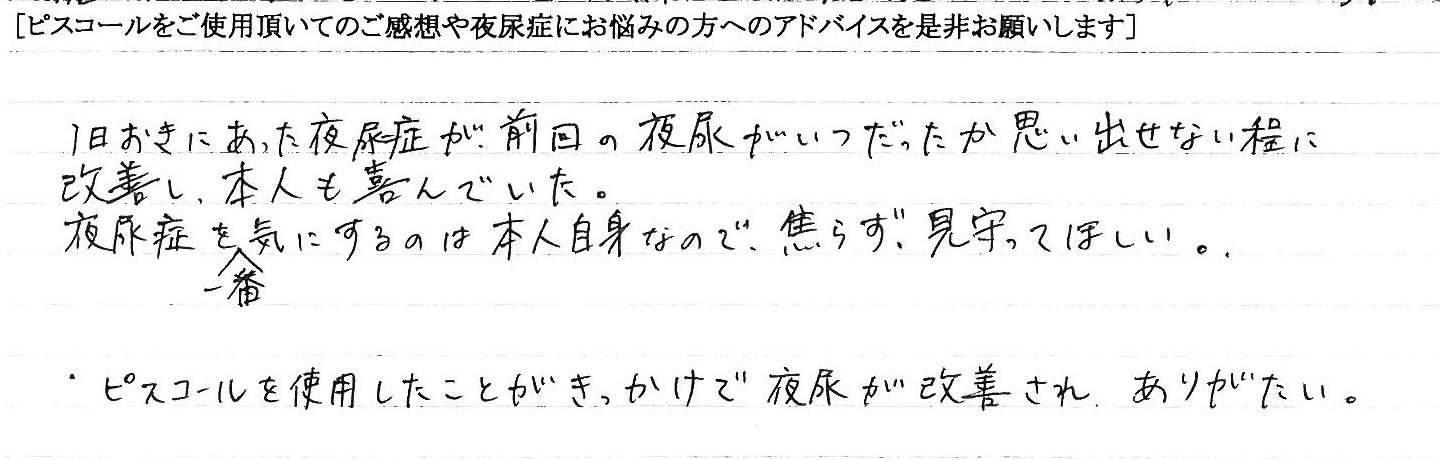 [ピスコールをご使用頂いてのご感想や夜尿症にお悩みの方へのアドバイスを是非お願いします]
1日おきにあった夜尿症が、前回の夜尿がいつだったか思い出せない程に
改善し、本人も喜んでいた。
夜尿症を一番気にするのは本人自身なので、焦らず、見守ってほしい。
・ピスコールを使用したことがきっかけで夜尿が改善され、ありがたい。